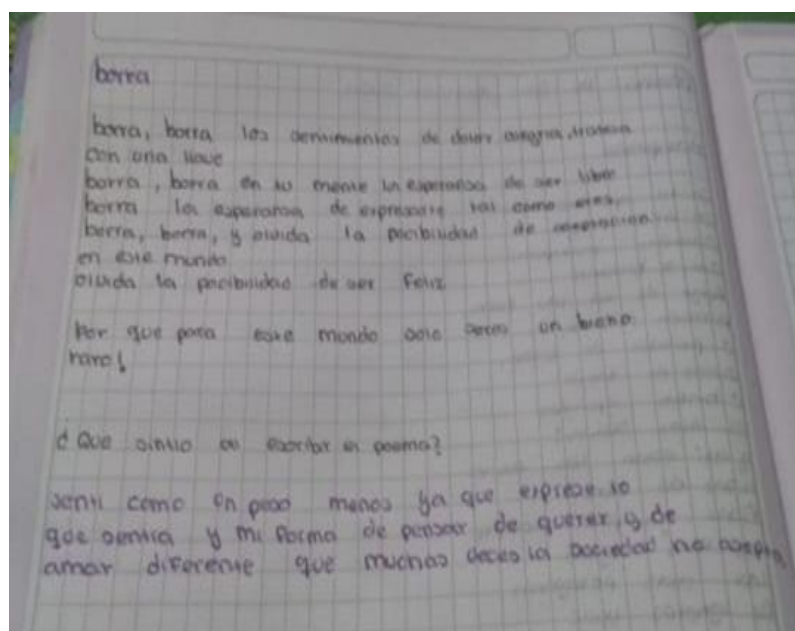 borra
borra, borra los sentimientos de dolor alegria, tristesa
con una llave
borra, borra en tu mente la esperansa de ser libre
borra la esperansa de expresarte tal como eres,
borra, borra, y olvida la pocibilidad de aceptacion
en este mundo
olvida la pocibilidad de ser feliz
Por que para este mundo solo seras un bicho
raro!
¿Que sintio al escribir el poema?
senti como un peso menos ya que exprese lo
que sentia y mi forma de pensar de querer y de
amar diferente que muchas veces la sociedad no acepta